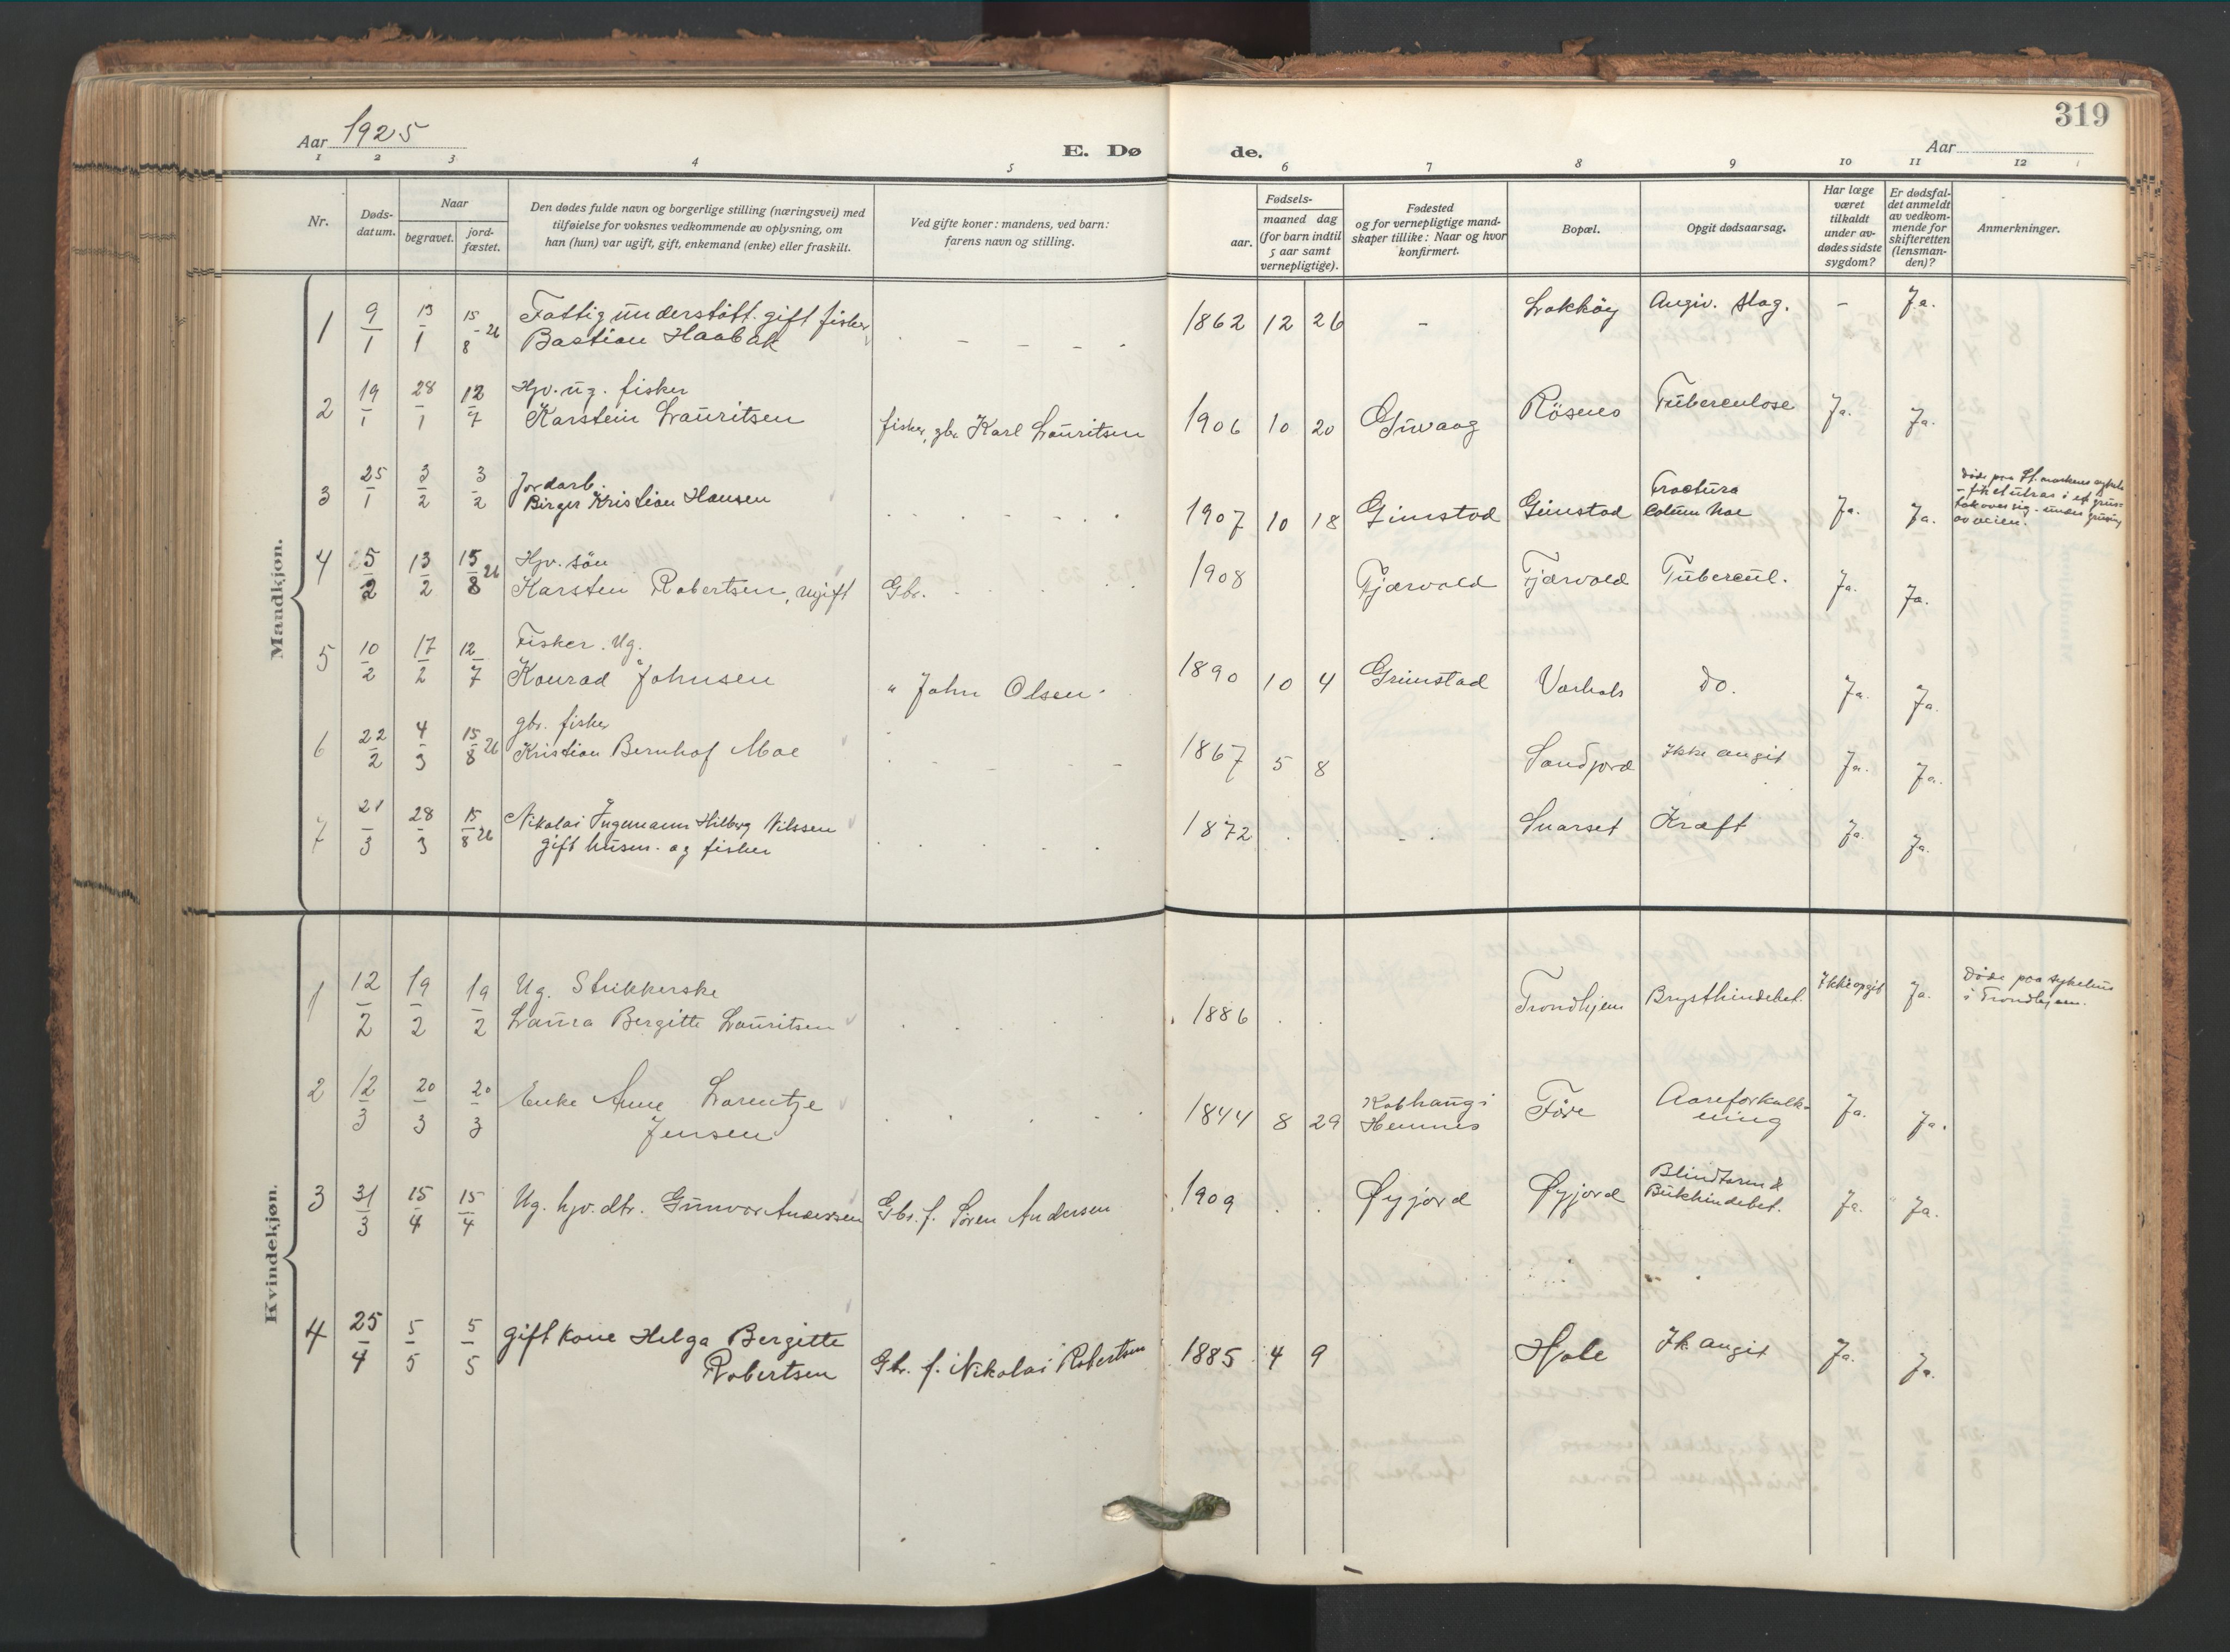 Aar 1925
E. Dø
de.
319
Aar
1 2 3 4 5 6 7 8 9 10 11 12
Nr.
Døds-
datum.
Naar
begravet.
jord-
fæstet.
Den dødes fulde navn og borgerlige stilling (næringsvei) med
tilføielse for voksnes vedkommende av oplysning, om
han (hun) var ugift, gift, enkemand (enke) eller fraskilt.
Ved gifte koner: mandens, ved barn:
farens navn og stilling.
Fødsels-
aar.
maaned dag
(for barn indtil
5 aar samt
vernepligtige).
Fødested
og for vernepligtige mand-
skaper tillike: Naar og hvor
konfirmert.
Bopæl.
Opgit dødsaarsag.
Har læge
været
tilkaldt
under av-
dødes sidste
sygdom?
Er dødsfal-
det anmeldt
av vedkom-
mende for
skifteretten
(lensman-
den)?
Anmerkninger.
Mandkjøn.
1 9/1 13/1 15/8 26 Fattigunderstøtt. gift fisker
Bastian Haabak
1862 12 26 - Lokkøy Angiv. slag. - Ja.
2 19/1 28/1 12/7 Hjv. ug. fisker
Karstein Lauritsen fisker, gbr Karl Lauritsen 1906 10 20 Ginvaag Røsnes Tuberculose Ja. Ja.
3 25/1 3/2 3/2 Jordarb.
Birger Kristian Hansen 1907 10 18 Grimstad Grimstad Fractura
Ja. Ja.
4 5/2 13/2 15/8 26 Hjv. søn
Karsten Robertsen, ugift Gbr. 1908 Fjærvold Fjærvold Tubercul. Ja. Ja.
5 10/2 17/2 12/7 Fisker. Ug.
Konrad Johnsen " John Olsen 1890 10 4 Grimstad Do. Ja. Ja.
6 22/2 4/3 15/8 26 gbr. fisker
Kristian Bernhof Moe 1867 5 8 Sandjord Ikke angit Ja. Ja.
7 21/3 28/3 15/8 26 Nikolai Ingemann Hilberg Nilssen
gift husm. og fisker 1872 Snarset Kræft Ja. Ja.
Kvindekjøn.
1 12/2 19/2 19/2 Ug. Strikkerske
Laura Bergitte Lauritsen 1886 Trondhjem Brysthindebet. Ikke opgit Ja. Døde paa sykehus
i Trondhjem.
2 12/3 20/3 20/3 Enke Anne Lorentze
Jensen 1844 8 29 Hemnes Føre Aareforkalk-
ning Ja. Ja.
3 31/3 15/4 15/4 Ug. hjv. dtr. Gunvor Andersen Gbr. f. Søren Andersen 1909 Øyjord Øyjord Blindtarm &
Bukhindebet. Ja. Ja.
4 25/4 5/5 5/5 gift kone Helga Bergitte
Robertsen Gbr. f. Nikolai Robertsen 1885 4 9 Hole Ik. angit Ja. Ja.